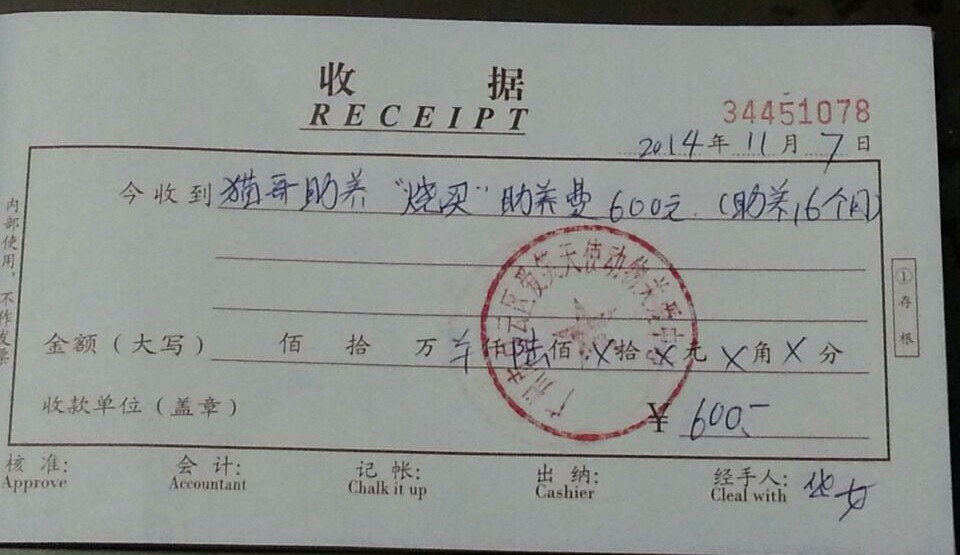 收 据
RECEIPT
34451078
2014年11月7日
今收到 猫哥助养“烧买”助养费600元（助养,6个月）
金额（大写） 佰 拾 万 仟 陆佰 X拾 X元 X角 X分
收款单位（盖章） ¥ 600
核 准: 会 计: 记 帐: 出 纳: 经手人:
Approve Accountant Chalk it up Cashier Cleal with
内部使用，不作发票
①存根
爱笑天使动物关爱中心